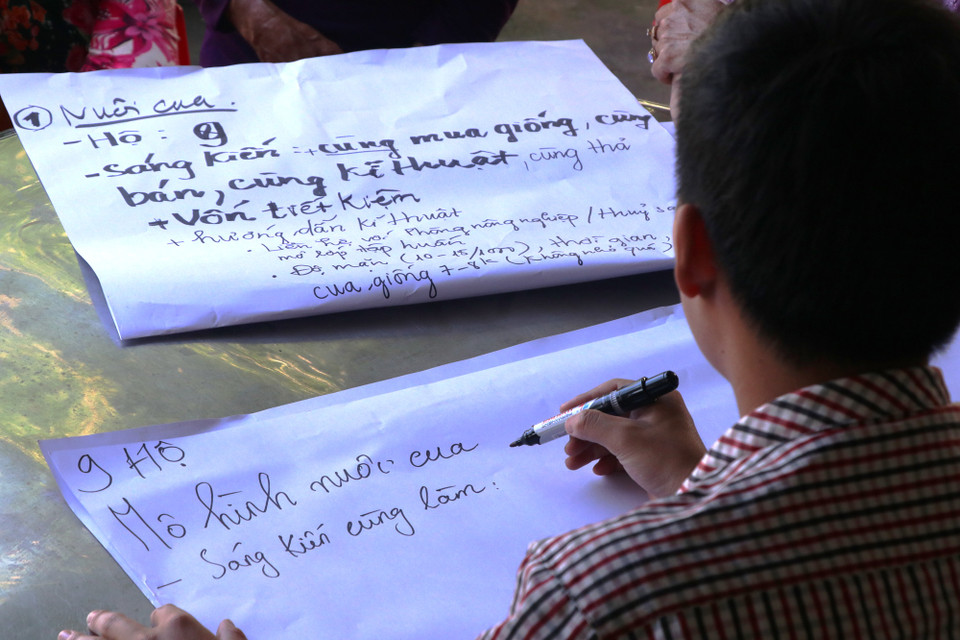 ① Nuôi cua.
- Hộ: 9
- Sáng kiến: + cùng mua giống, cùng
bán, cùng kĩ thuật, cùng thả
+ Vốn tiết kiệm
+ hướng dẫn kĩ thuật
· Liên hệ với Phòng nông nghiệp / thuỷ sả
mở lớp tập huấn
· Độ mặn (10-15/1000), thời gian
cua giống 7-8k (không nên quá
9 Hộ
Mô hình nuôi cua
- Sáng kiến cùng làm: